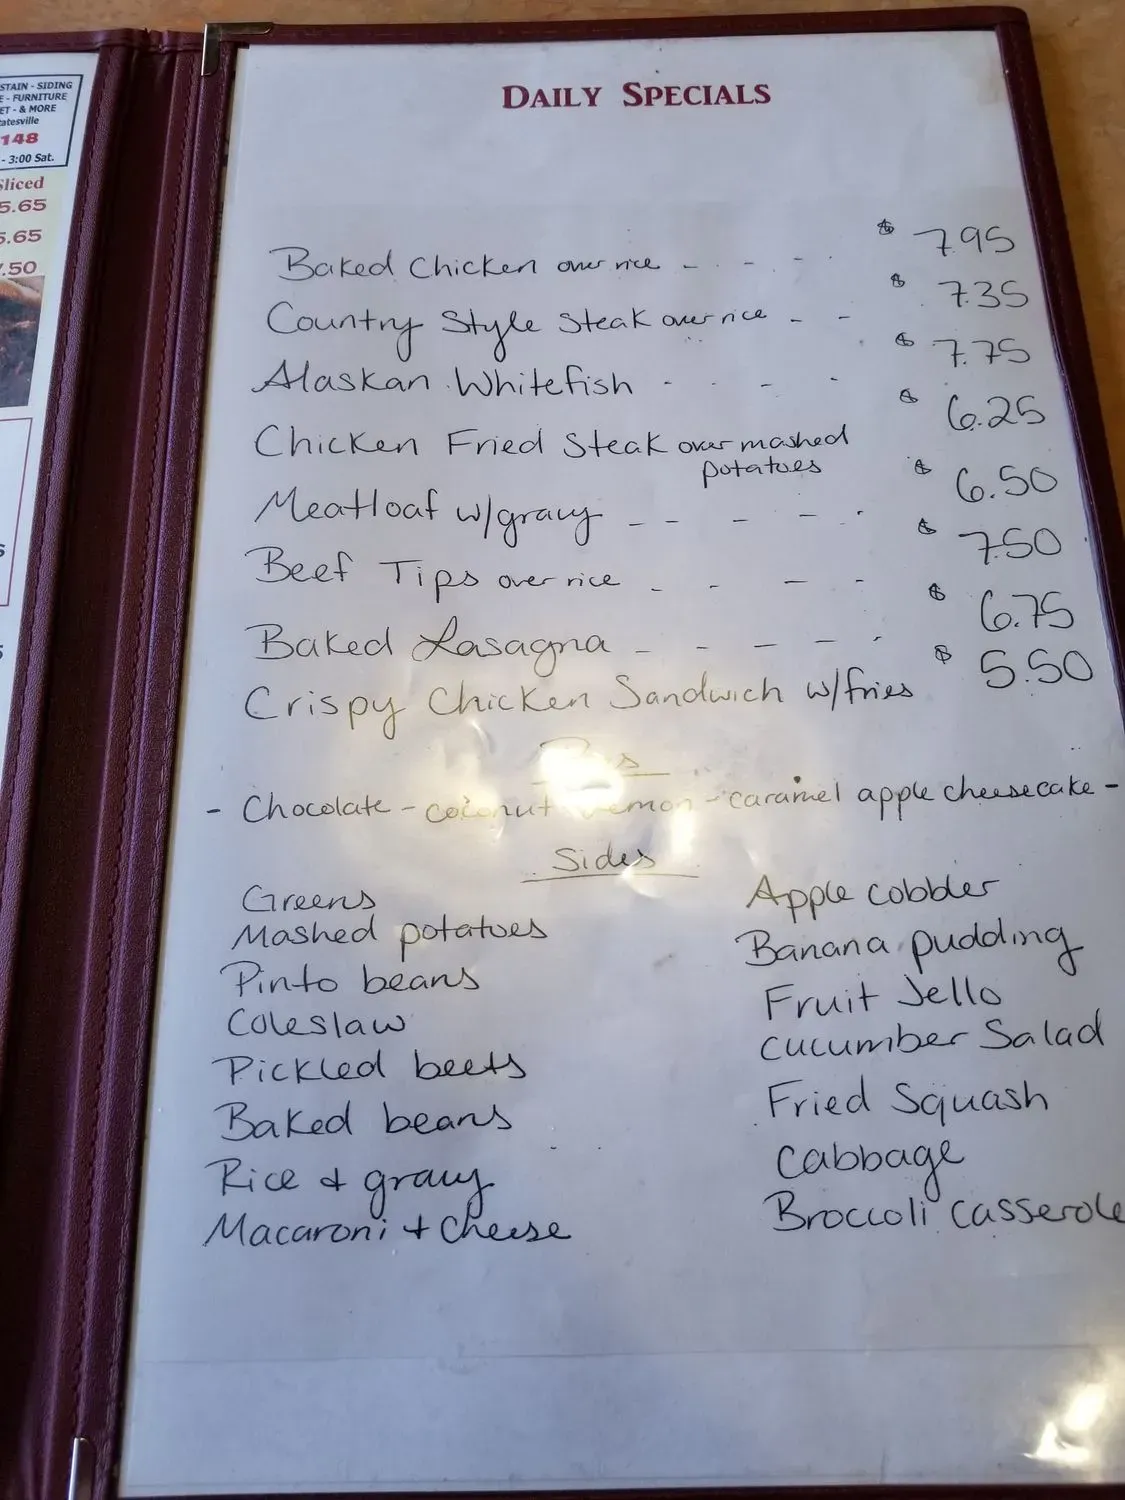 STAIN - SIDING
- FURNITURE
& MORE
148
- 3:00 Sat.
Sliced
5.65
.65
.50
DAILY SPECIALS
Baked Chicken over rice - - - - $ 7.95
Country Style Steak over rice - - $ 7.35
Alaskan Whitefish - - - - $ 7.75
Chicken Fried Steak over mashed $ 6.25
potatoes
Meatloaf w/gravy - - - - - $ 6.50
Beef Tips over rice - - - - $ 7.50
Baked Lasagna - - - - - $ 6.75
Crispy Chicken Sandwich w/fries $ 5.50
- Chocolate - coconut - lemon - caramel apple cheesecake -
Sides
Greens
Mashed potatoes
Pinto beans
Coleslaw
Pickled beets
Baked beans
Rice + gravy
Macaroni + Cheese
Apple cobbler
Banana pudding
Fruit Jello
cucumber Salad
Fried Squash
Cabbage
Broccoli casserole